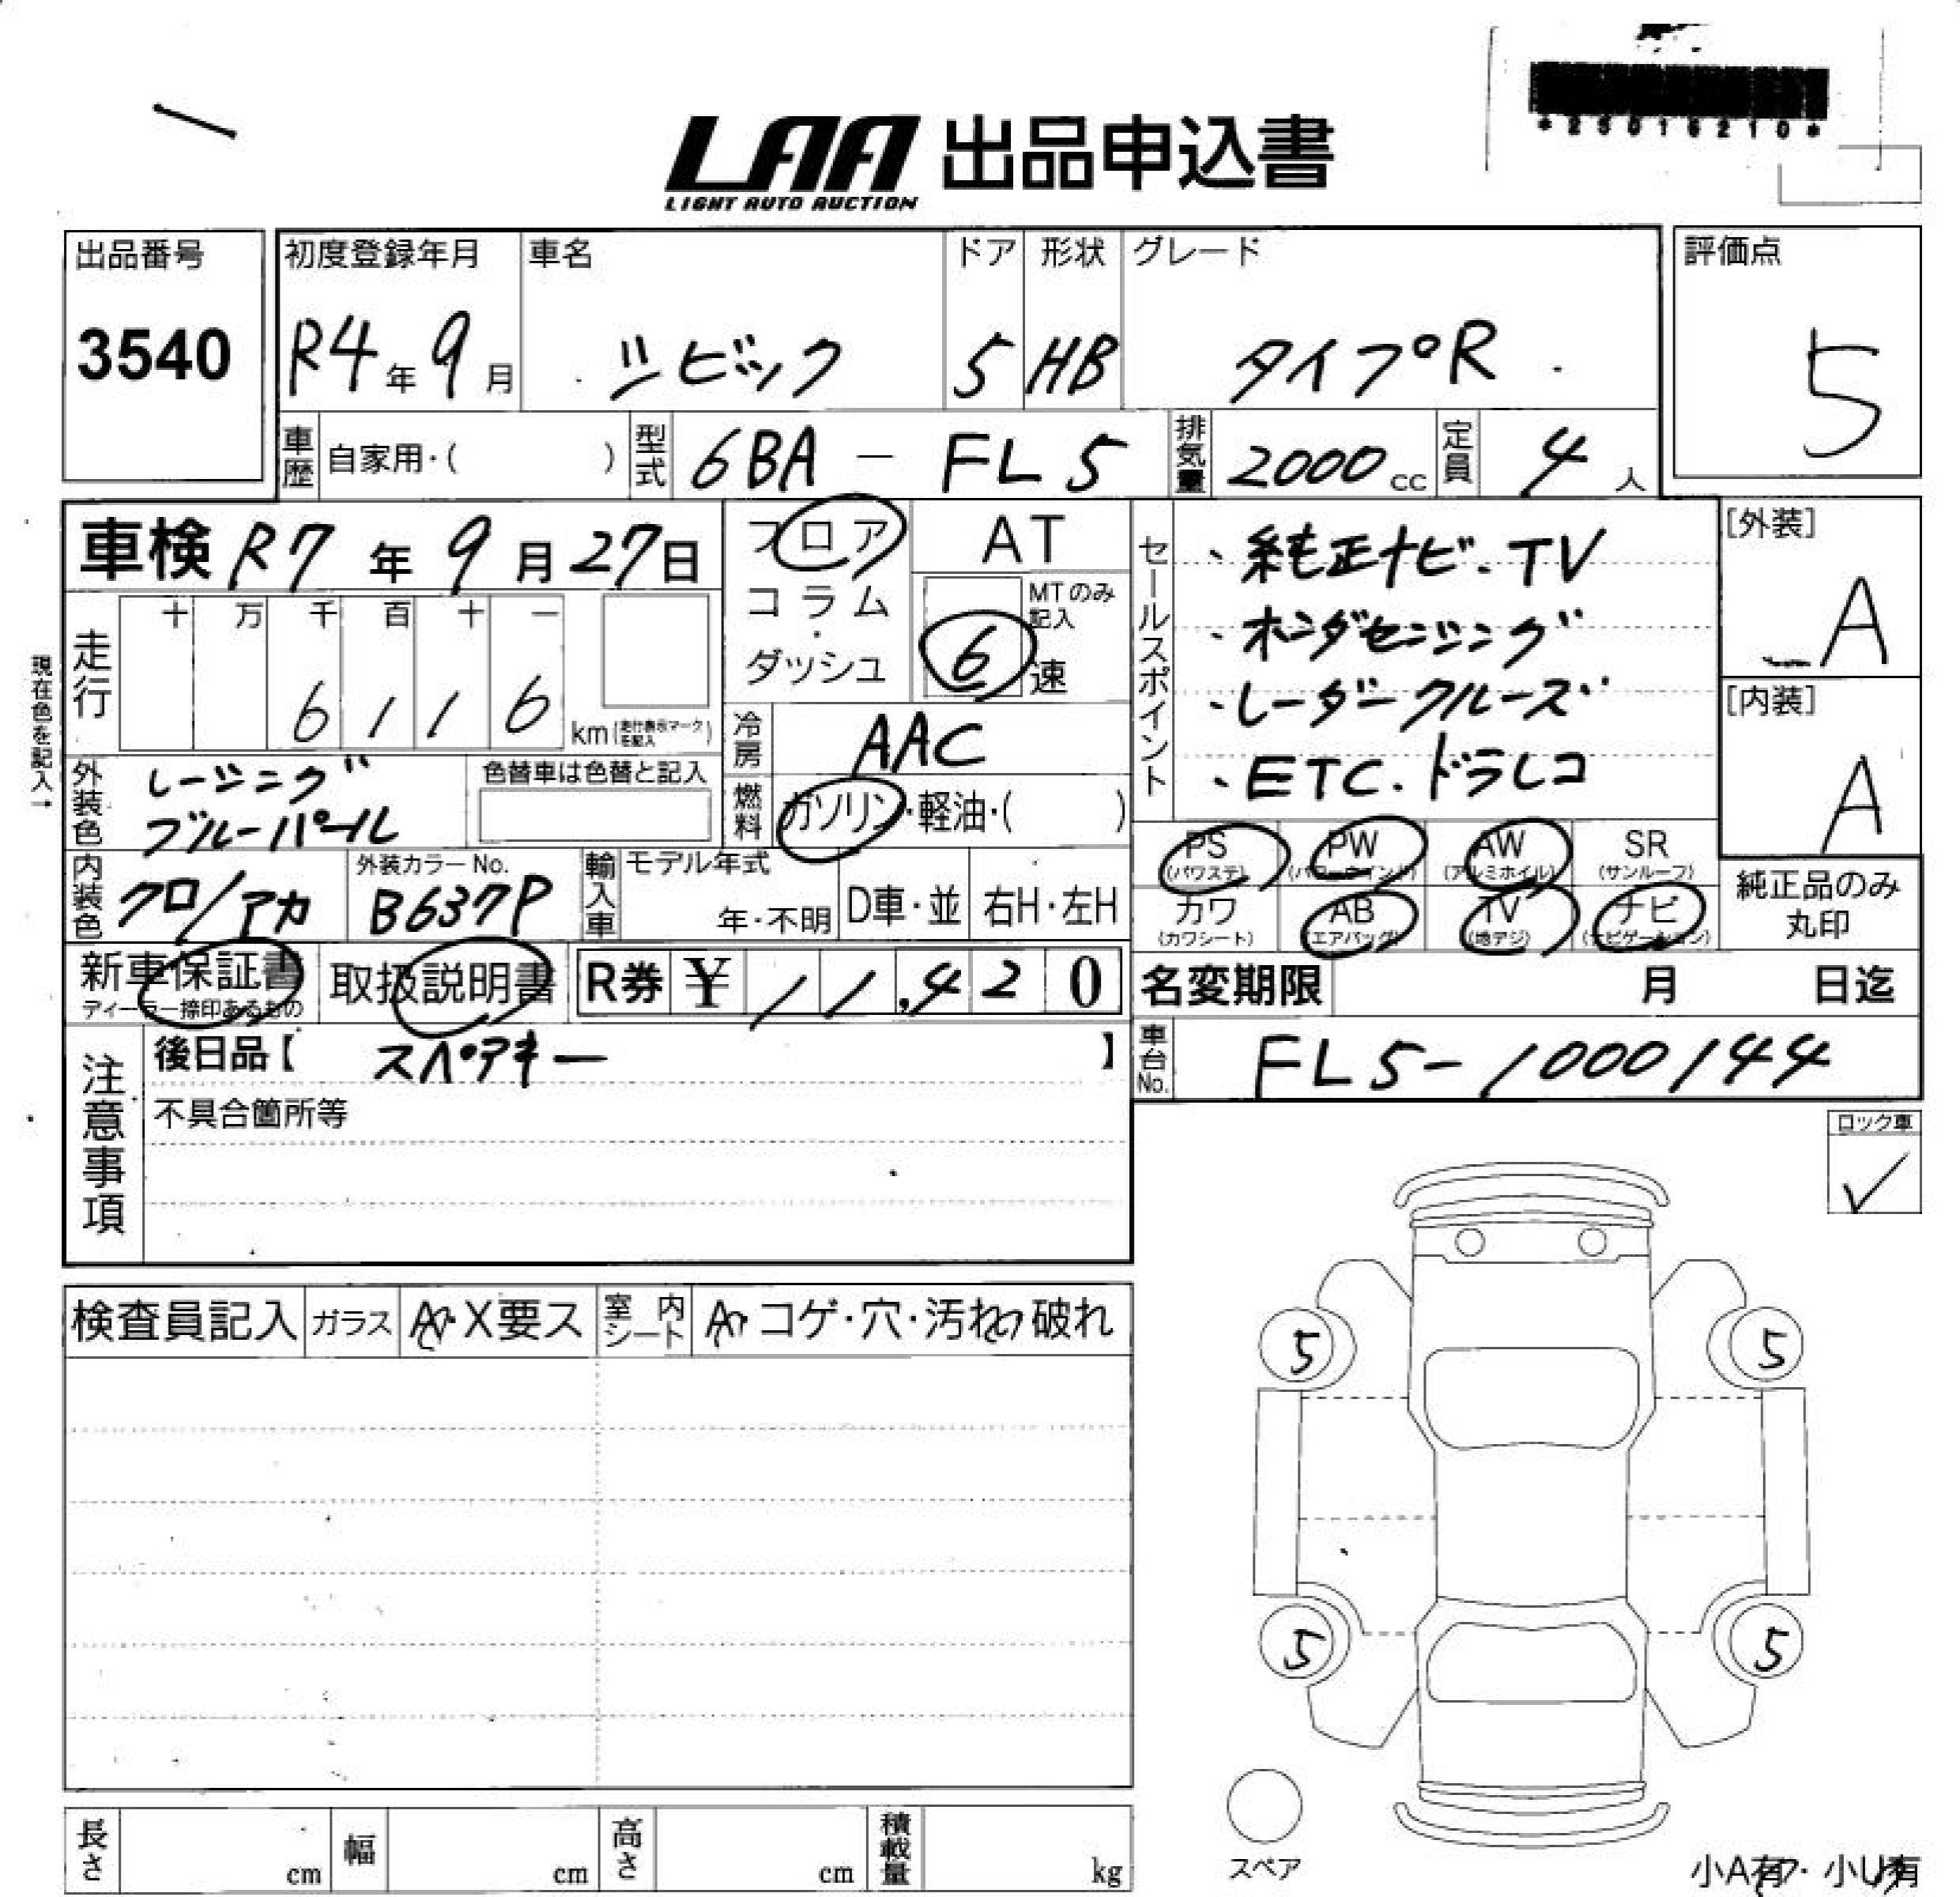 *25016210*
LAA 出品申込書
LIGHT AUTO AUCTION
出品番号 初度登録年月 車名 ドア 形状 グレード 評価点
3540 R4年9月 シビック 5 HB タイプR 5
車歴 自家用・( ) 型式 6BA - FL5 排気量 2000cc 定員 4人
車検 R7年9月27日 フロア AT
コラム・ダッシュ MTのみ記入 6速
現在色を記入→
走行 十 万 千 百 十 一
6 1 1 6 km(走行表示マークを記入)
冷房 AAC
セールスポイント
・純正ナビ.TV
・ホンダセンシング
・レーダークルーズ
・ETC.ドラレコ
[外装]
A
[内装]
A
外装色 レーシングブルーパール 色替車は色替と記入 燃料 ガソリン・軽油・( )
PS(パワステ) PW(パワーウインド) AW(アルミホイル) SR(サンルーフ)
カワ(カワシート) AB(エアバッグ) TV(地デジ) ナビ(ナビゲーション)
純正品のみ
丸印
内装色 クロ/アカ 外装カラーNo. B637P 輸入車 モデル年式 年・不明 D車・並 右H・左H
新車保証書 ディーラー捺印あるもの 取扱説明書 R券 ¥11,420 名変期限 月 日迄
注意事項 後日品【 スペアキー 】 車台No. FL5-1000144
不具合箇所等
ロック車
✓
検査員記入 ガラス A・X要ス 室内シート A・コゲ・穴・汚れ・破れ
5 5
5 5
スペア
長さ cm 幅 cm 高さ cm 積載量 kg
小A有・小U有